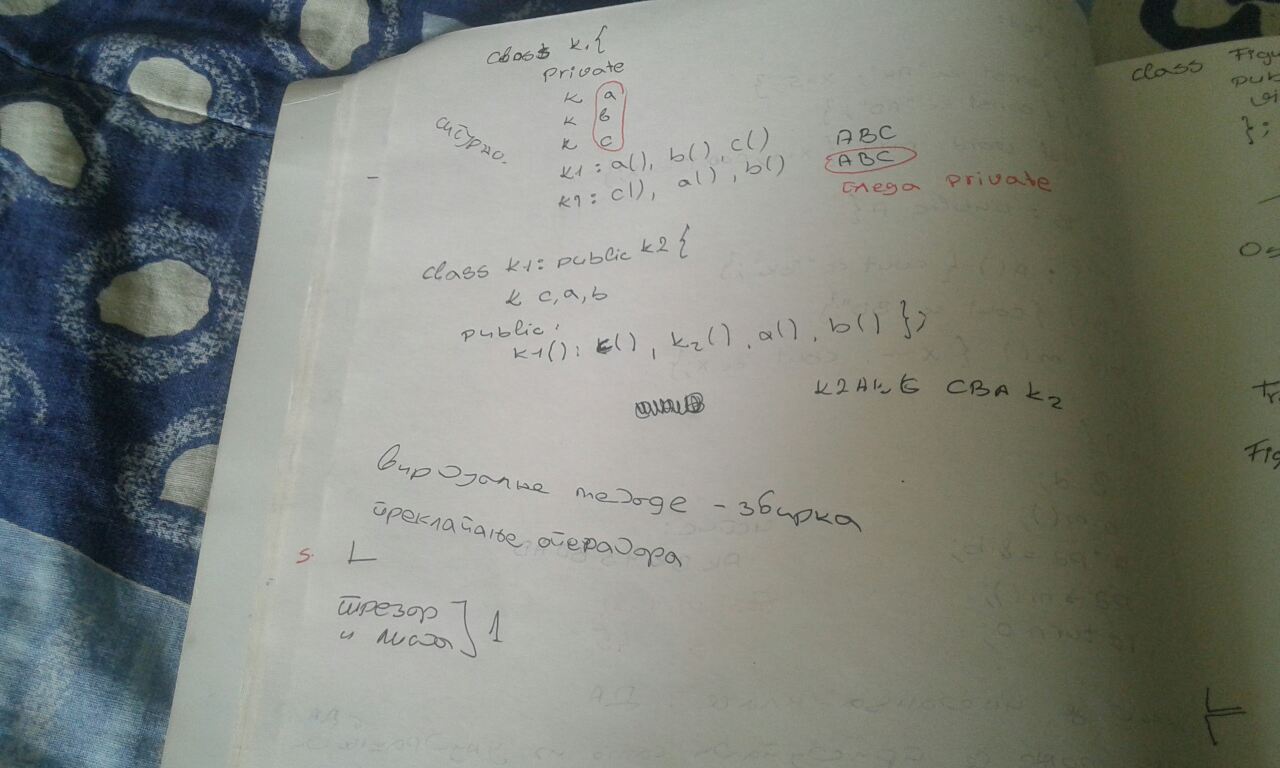 class K {
private
K a
K b
K c
сигурно.
K1: a(), b(), c() ABC
K1: c(), a(), b() ABC
гледа private
class K1: public K2 {
K c, a, b
public:
K1(): c(), K2(), a(), b() };
CBA K2
виртуалне методе - збирка
преклапање оператора
5.
трезор
и листа } 1
class Figu
pub
vi
};
Os
Fig